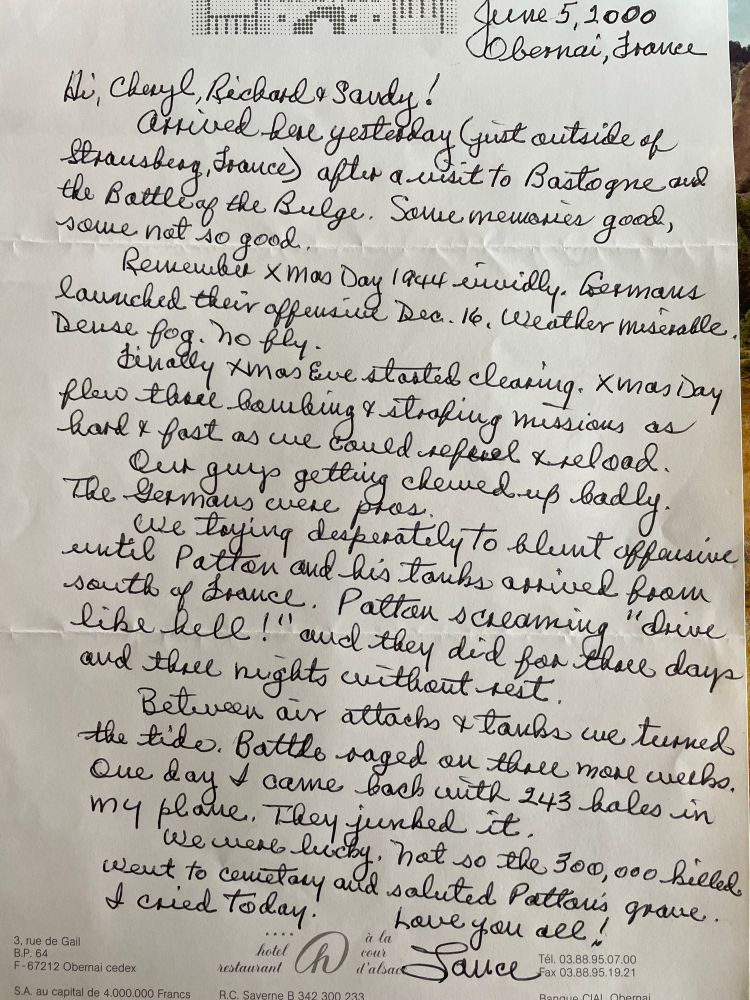 June 5, 2000
Obernai, France
Hi, Cheryl, Richard & Sandy!
Arrived here yesterday (just outside of
Strausberg, France) after a visit to Bastogne and
the Battle of the Bulge. Some memories good,
some not so good.
Remember Xmas Day 1944 vividly. Germans
launched their offensive Dec. 16. Weather miserable.
Dense fog. No fly.
Finally Xmas Eve started clearing. Xmas Day
flew three bombing & strafing missions as
hard & fast as we could refuel & reload.
Our guys getting chewed up badly.
The Germans were pros.
We trying desperately to blunt offensive
until Patton and his tanks arrived from
south of France. Patton screaming "drive
like hell!" and they did for three days
and three nights without rest.
Between air attacks & tanks we turned
the tide. Battle raged on three more weeks.
One day I came back with 243 holes in
my plane. They junked it.
We were lucky. Not so the 300,000 killed
Went to cemetary and saluted Patton's grave.
I cried today. Love you all!
Lance
3, rue de Gail
B.P. 64
F-67212 Obernai cedex
hotel
restaurant
h
à la
cour
d'alsace
Tél. 03.88.95.07.00
Fax 03.88.95.19.21
S.A. au capital de 4.000.000 Francs
R.C. Saverne B 342 300 233
Banque CIAL Obernai